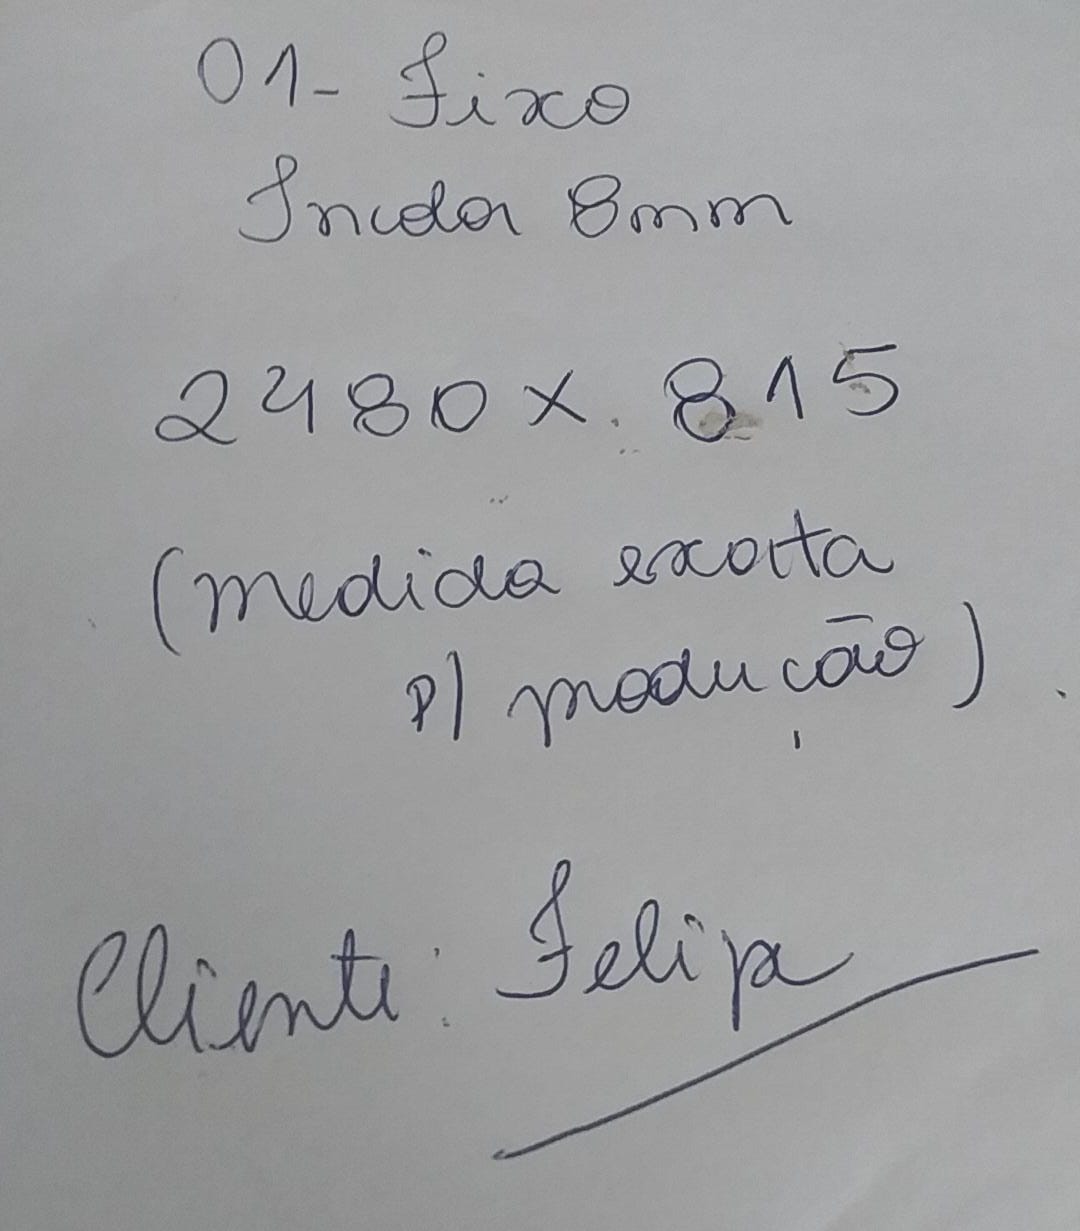 01- Fixo
Incolor 8mm
2480 x 815
(medida exata
p/ produção)
Cliente: Felipe